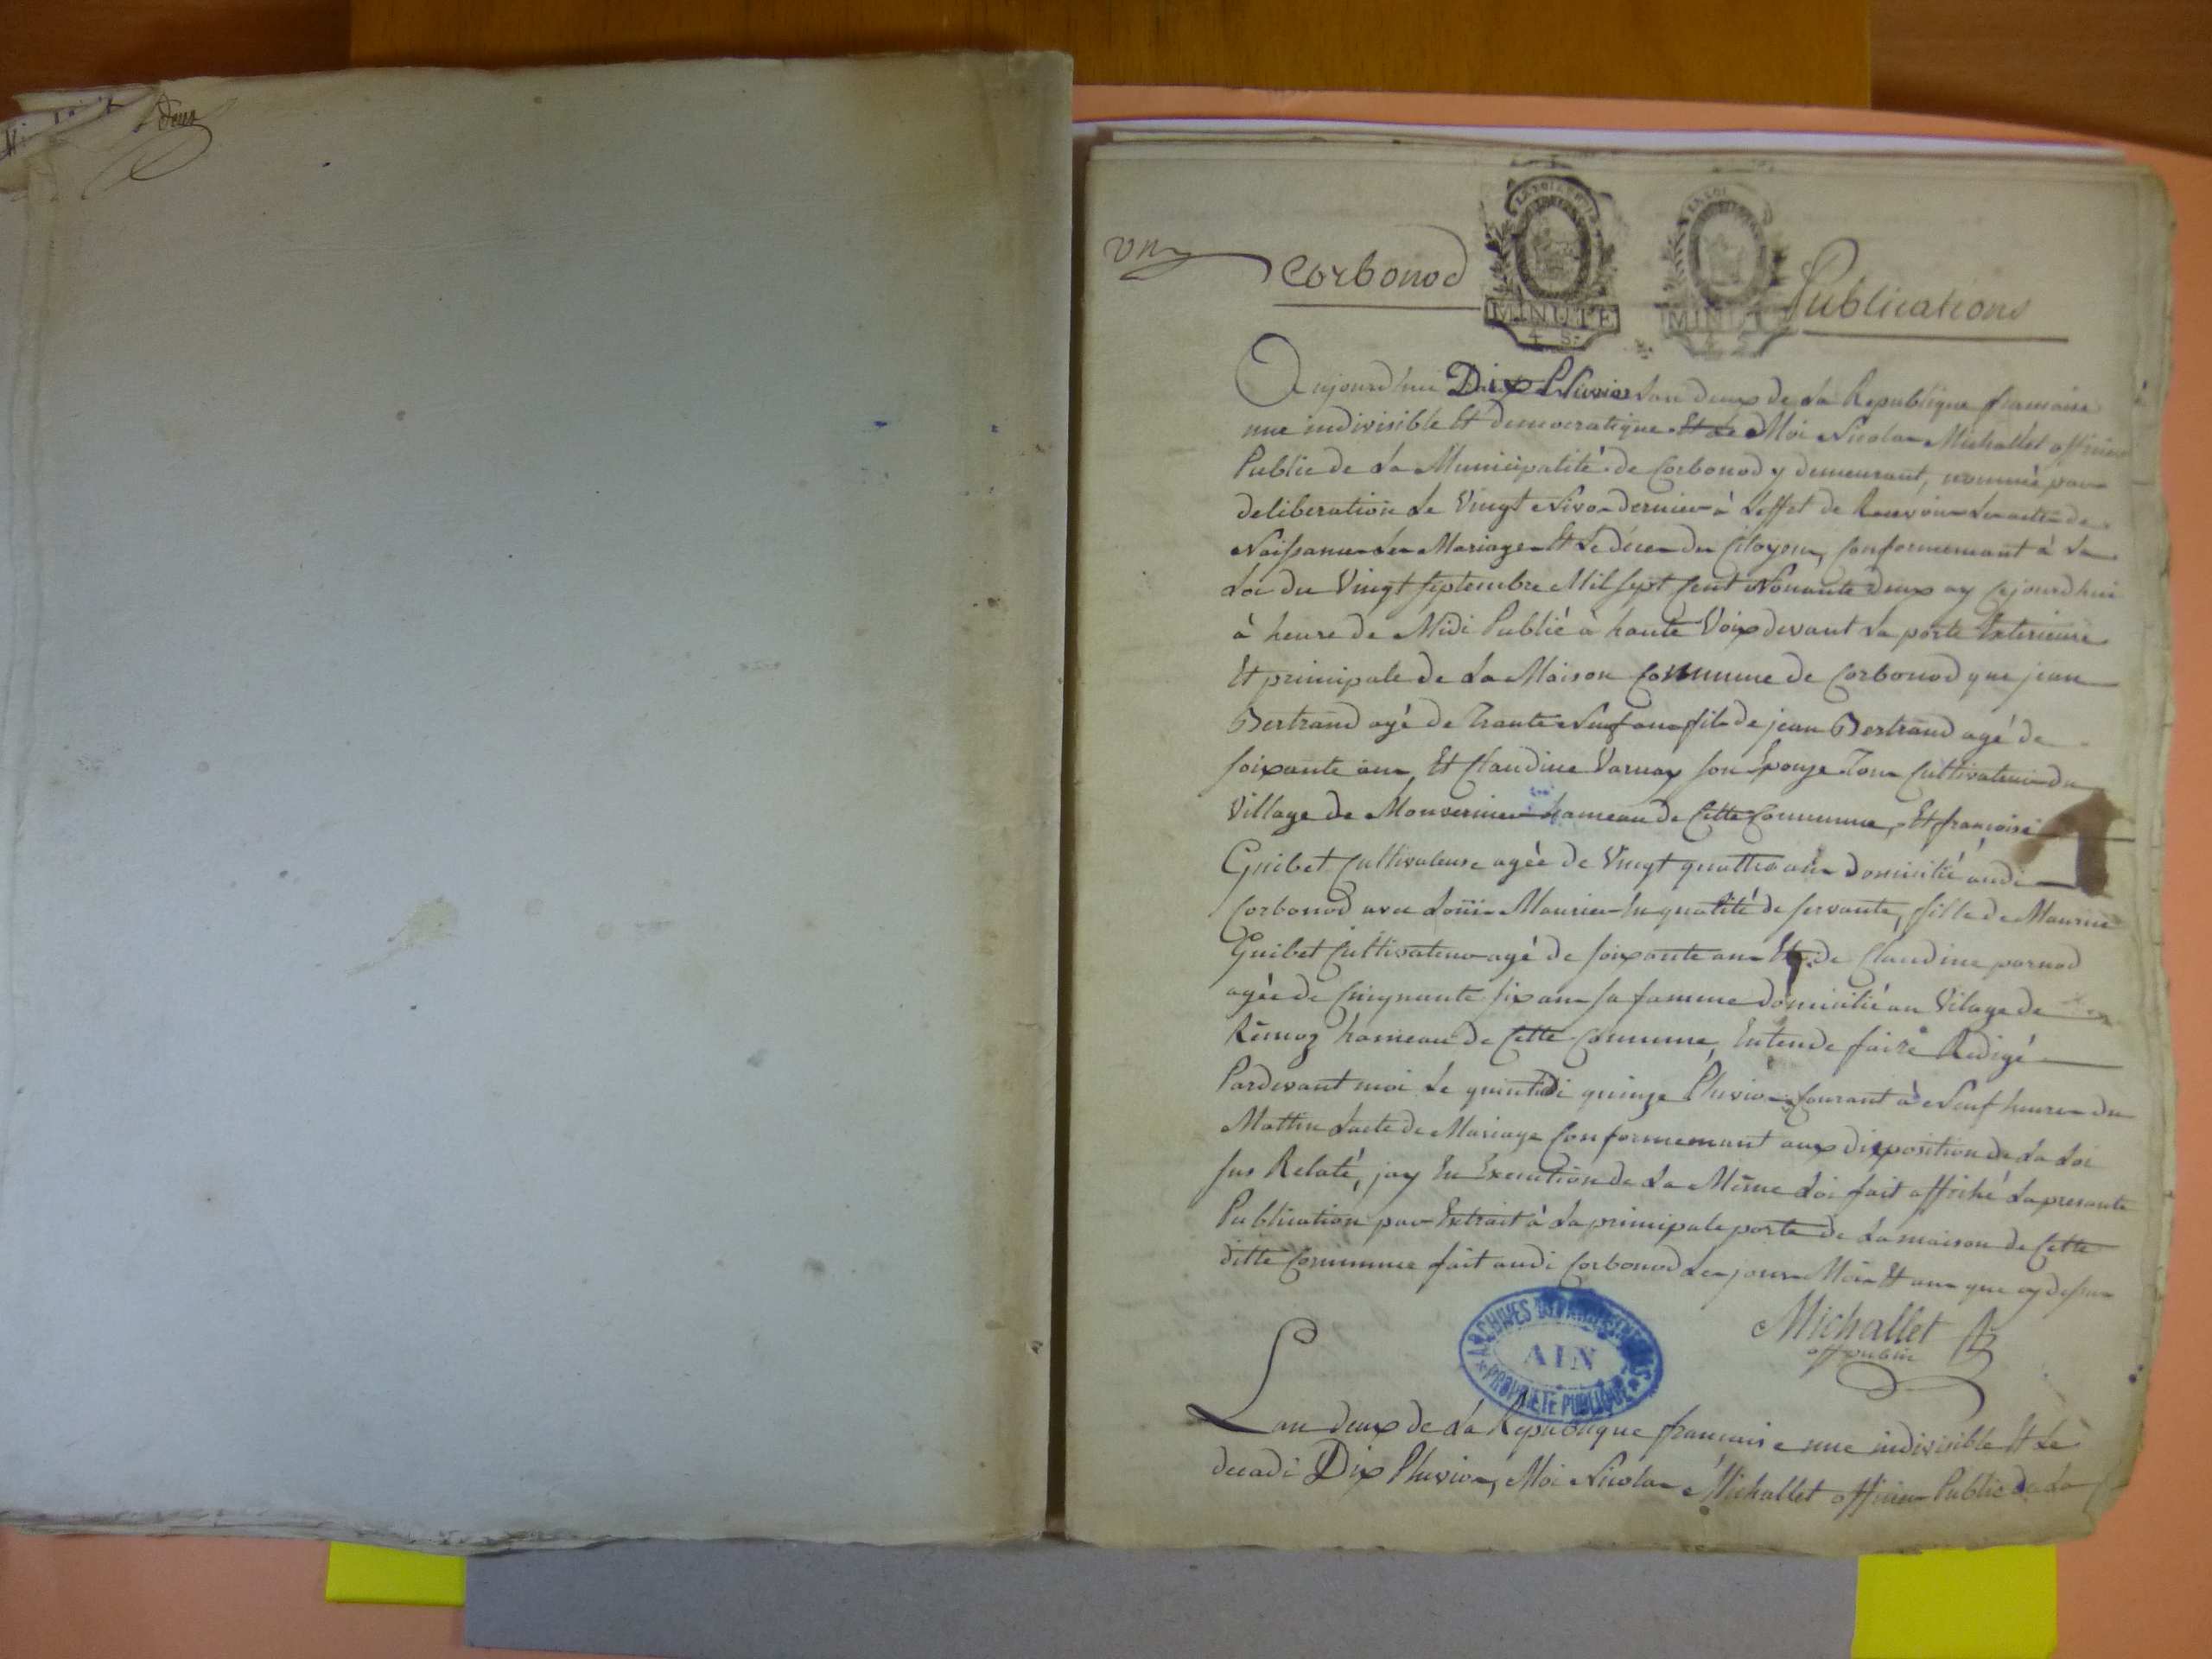 deux
un
Corbonod
Publications
LA LOI
MINUTE
4 S.
LA LOI
MINUTE
4 S
Aujourd'hui Dix Pluvios lan deux de La Republique francaise
une indivisible Et democratique Et Le Moi Nicolas Michallet officier
Public de La Municipalité de Corbonod y demeurant, nommé par
deliberation Le Vingt Nivos dernier à Leffet de Recevoir Les actes de
Naissance Les Mariages Et Le déces des Citoyens, Conformemant à La
Loi du Vingt Septembre Mil Sept Cent Nonante deux ay Cejourdhui
à heure de Midi Publié à haute Voix devant La porte Exterieure
Et principale de La Maison Commune de Corbonod que jean
Bertrand agé de Trante Neuf ans fils de jean Bertrand agé de
Soixante ans, Et Claudine Varnay son Epouse Tous Cultivateurs du
Village de hameau de Cette Commune, Et francoise
Guibet Cultivateuse agée de Vingt quattre ans domicilié audi
Corbonod avec Louis Maurier En qualité de servante, fille de Maurice
Guibet Cultivateur agé de soixante ans Et de Claudine parnod
agée de Cinquante six ans sa famme domicilié au Vilage de
Rémoz hameau de Cette Commune, Entende faire Redigé
Pardevant moi Le quintidi quinze Pluvios Courant à Neuf heures du
Mattin Lacte de Mariage Conformemant aux disposition de La Loi
sus Relaté, jay En Execution de La Même Loi fait affiché La presante
Publication par Extrait à La principale porte de La maison de Cette
ditte Commune fait audi Corbonod Les jour Mois Et ans que cy dessus
Michallet
off public
ARCHIVES DEPARTEMENTALES
AIN
PROPRIETE PUBLIQUE
Lan deux de La Republique francaise une indivisible Et Le
decadi Dix Pluvios, Moi Nicolas Michallet officier Public de La